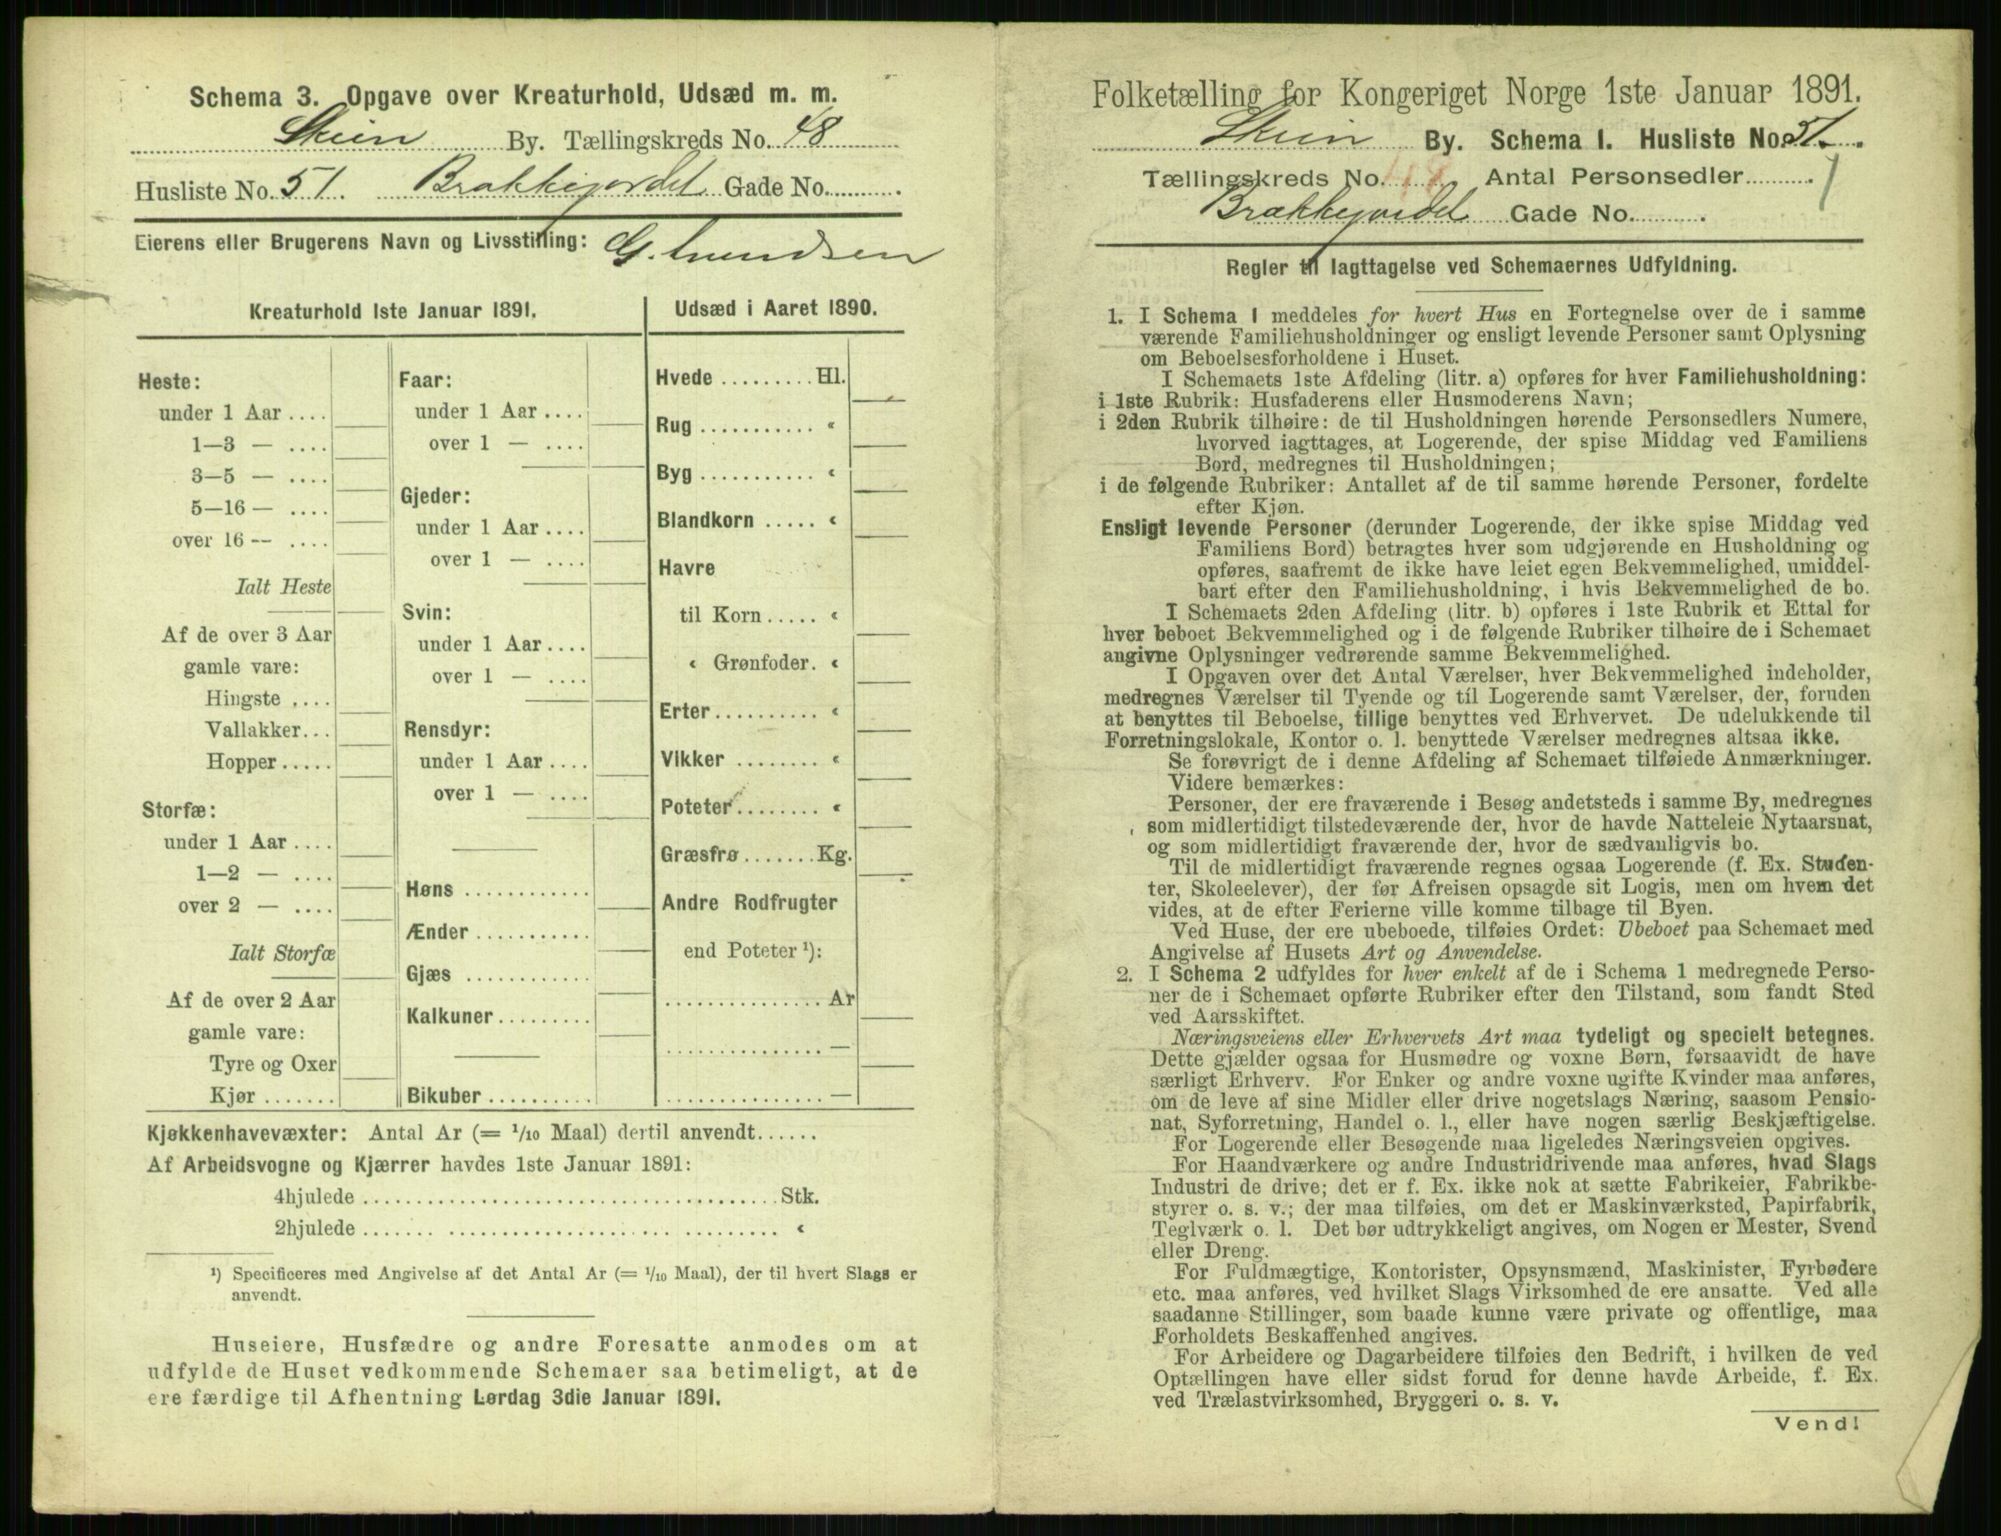 Schema 3. Opgave over Kreaturhold, Udsæd m. m.
Skien By. Tællingskreds No. 48
Husliste No. 51. Brækkejordet Gade No. .
Eierens eller Brugerens Navn og Livsstilling: G.
Kreaturhold 1ste Januar 1891.
Heste:
under 1 Aar ....
1—3 — ....
3—5 — ....
5—16 — ....
over 16 — ....
Ialt Heste
Af de over 3 Aar
gamle vare:
Hingste ....
Vallakker...
Hopper.....
Storfæ:
under 1 Aar ....
1—2 — ....
over 2 — ....
Ialt Storfæ
Af de over 2 Aar
gamle vare:
Tyre og Oxer
Kjør .......
Faar:
under 1 Aar ....
over 1 — ....
Gjeder:
under 1 Aar ....
over 1 — ....
Svin:
under 1 Aar ....
over 1 — ....
Rensdyr:
under 1 Aar ....
over 1 — ....
Høns ............
Ænder ...........
Gjæs ............
Kalkuner.........
Bikuber ..........
Udsæd i Aaret 1890.
Hvede .........Hl.
Rug ........... «
Byg ........... «
Blandkorn ..... «
Havre
til Korn..... «
« Grønfoder. «
Erter.......... «
Vikker ........ «
Poteter........ «
Græsfrø.......Kg.
Andre Rodfrugter
end Poteter ¹):
...............Ar
...............—
...............—
Kjøkkenhavevæxter: Antal Ar (= 1/10 Maal) dertil anvendt......
Af Arbeidsvogne og Kjærrer havdes 1ste Januar 1891:
4hjulede ........................................Stk.
2hjulede ........................................ «
¹) Specificeres med Angivelse af det Antal Ar (= 1/10 Maal), der til hvert Slags er
anvendt.
Huseiere, Husfædre og andre Foresatte anmodes om at
udfylde de Huset vedkommende Schemaer saa betimeligt, at de
ere færdige til Afhentning Lørdag 3die Januar 1891.
Folketælling for Kongeriget Norge 1ste Januar 1891.
Skien By. Schema I. Husliste No. 51.
Tællingskreds No. 48 Antal Personsedler 1
Brækkejordet Gade No. .
Regler til Iagttagelse ved Schemaernes Udfyldning.
1. I Schema 1 meddeles for hvert Hus en Fortegnelse over de i samme
værende Familiehusholdninger og ensligt levende Personer samt Oplysning
om Beboelsesforholdene i Huset.
I Schemaets 1ste Afdeling (litr. a) opføres for hver Familiehusholdning:
i 1ste Rubrik: Husfaderens eller Husmoderens Navn;
i 2den Rubrik tilhøire: de til Husholdningen hørende Personsedlers Numere,
hvorved iagttages, at Logerende, der spise Middag ved Familiens
Bord, medregnes til Husholdningen;
i de følgende Rubriker: Antallet af de til samme hørende Personer, fordelte
efter Kjøn.
Ensligt levende Personer (derunder Logerende, der ikke spise Middag ved
Familiens Bord) betragtes hver som udgjørende en Husholdning og
opføres, saafremt de ikke have leiet egen Bekvemmelighed, umiddel-
bart efter den Familiehusholdning, i hvis Bekvemmelighed de bo.
I Schemaets 2den Afdeling (litr. b) opføres i 1ste Rubrik et Ettal for
hver beboet Bekvemmelighed og i de følgende Rubriker tilhøire de i Schemaet
angivne Oplysninger vedrørende samme Bekvemmelighed.
I Opgaven over det Antal Værelser, hver Bekvemmelighed indeholder,
medregnes Værelser til Tyende og til Logerende samt Værelser, der, foruden
at benyttes til Beboelse, tillige benyttes ved Erhvervet. De udelukkende til
Forretningslokale, Kontor o. l. benyttede Værelser medregnes altsaa ikke.
Se forøvrigt de i denne Afdeling af Schemaet tilføiede Anmærkninger.
Videre bemærkes:
Personer, der ere fraværende i Besøg andetsteds i samme By, medregnes
som midlertidigt tilstedeværende der, hvor de havde Natteleie Nytaarsnat,
og som midlertidigt fraværende der, hvor de sædvanligvis bo.
Til de midlertidigt fraværende regnes ogsaa Logerende (f. Ex. Studen-
ter, Skoleelever), der før Afreisen opsagde sit Logis, men om hvem det
vides, at de efter Ferierne ville komme tilbage til Byen.
Ved Huse, der ere ubeboede, tilføies Ordet: Ubeboet paa Schemaet med
Angivelse af Husets Art og Anvendelse.
2. I Schema 2 udfyldes for hver enkelt af de i Schema 1 medregnede Perso-
ner de i Schemaet opførte Rubriker efter den Tilstand, som fandt Sted
ved Aarsskiftet.
Næringsveiens eller Erhvervets Art maa tydeligt og specielt betegnes.
Dette gjælder ogsaa for Husmødre og voxne Børn, forsaavidt de have
særligt Erhverv. For Enker og andre voxne ugifte Kvinder maa anføres,
om de leve af sine Midler eller drive nogetslags Næring, saasom Pensio-
nat, Syforretning, Handel o. l., eller have nogen særlig Beskjæftigelse.
For Logerende eller Besøgende maa ligeledes Næringsveien opgives.
For Haandværkere og andre Industridrivende maa anføres, hvad Slags
Industri de drive; det er f. Ex. ikke nok at sætte Fabrikeier, Fabrikbe-
styrer o. s. v.; der maa tilføies, om det er Maskinværksted, Papirfabrik,
Teglværk o. l. Det bør udtrykkeligt angives, om Nogen er Mester, Svend
eller Dreng.
For Fuldmægtige, Kontorister, Opsynsmænd, Maskinister, Fyrbødere
etc. maa anføres, ved hvilket Slags Virksomhed de ere ansatte. Ved alle
saadanne Stillinger, som baade kunne være private og offentlige, maa
Forholdets Beskaffenhed angives.
For Arbeidere og Dagarbeidere tilføies den Bedrift, i hvilken de ved
Optællingen have eller sidst forud for denne havde Arbeide, f. Ex.
ved Trælastvirksomhed, Bryggeri o. s. v.
Vend!